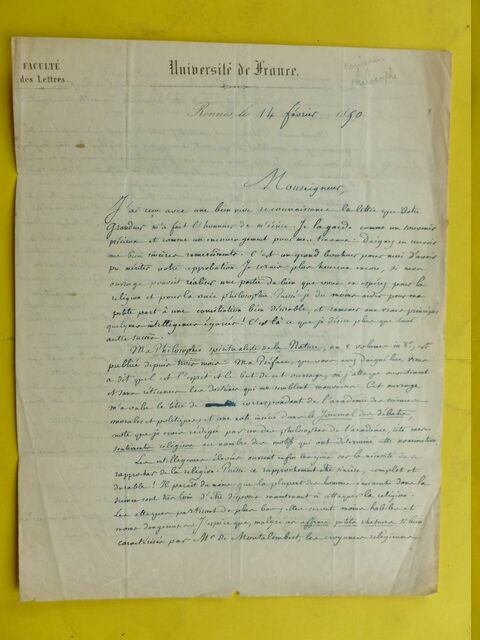 FACULTÉ
des Lettres.
Université de France.
écrivain
philosophe
Rennes, le 14 février 1850
Monseigneur,
J'ai reçu avec une bien vive reconnaissance la lettre que Votre
Grandeur m'a fait l'honneur de m'écrire. Je la garde comme un souvenir
précieux et comme un encouragement pour mes travaux. Daignez en recevoir
mes bien sincères remerciments. C'est un grand bonheur pour moi d'avoir
pu mériter votre approbation. Je serais plus heureux encore, si mon
ouvrage pouvait réaliser une partie du bien que vous en espérez pour la
religion et pour la vraie philosophie. Puissé-je du moins aider pour ma
petite part à une conciliation bien désirable, et ramener aux vrais principes
quelques intelligences égarées ! C'est là ce que je désire plus que tout
autre succès.
Ma Philosophie spiritualiste de la Nature, en 2 volumes in 8°, est
publiée depuis trois mois. Ma Préface, que vous avez daigné lire, vous
a dit quel est l'esprit et le but de cet ouvrage, où j'attaque ouvertement
et sans réticence les doctrines qui me semblent mauvaises. Cet ouvrage
m'a valu le titre de correspondant de l'académie des sciences
morales et politiques, et une note insérée dans le Journal des débats,
note que je crois rédigée par un des philosophes de l'académie, cite mes
sentiments religieux au nombre des motifs qui ont déterminé cette nomination.
Les intelligences élevées sentent enfin les yeux sur la nécessité de se
rapprocher de la religion. Puisse ce rapprochement être sincère, complet et
durable ! Il paraît du moins que la plupart des hommes éminents dans la
science sont très loin d'être disposés maintenant à attaquer la religion.
Les attaques partiront de plus bas ; elles seront moins habiles et
moins dangereuses. J'espère que, malgré ces affreux petits rhéteurs si bien
caractérisés par Mr de Montalembert, les croyances religieuses